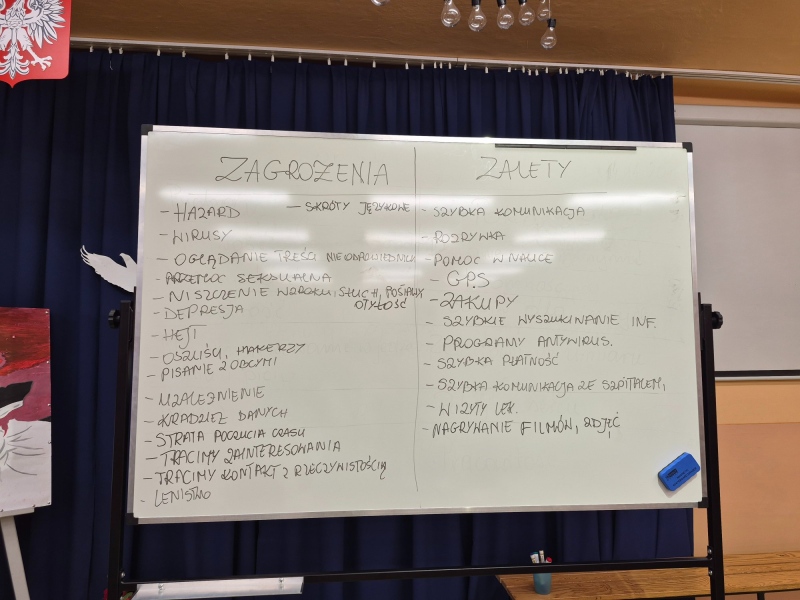 ZAGROŻENIA
- HAZARD
- SKRÓTY JĘZYKOWE
- WIRUSY
- OGLĄDANIE TREŚCI NIEODPOWIEDNICH
- PRZEMOC SEKSUALNA
- NISZCZENIE WZROKU, SŁUCH,
OTYŁOŚĆ
- DEPRESJA
- HEJT
- OSZUŚCI, HAKERZY
- PISANIE Z OBCYMI
- UZALEŻNIENIE
- KRADZIEŻ DANYCH
- STRATA POCZUCIA CZASU
- TRACIMY ZAINTERESOWANIA
- TRACIMY KONTAKT Z RZECZYWISTOŚCIĄ
- LENISTWO
ZALETY
- SZYBKA KOMUNIKACJA
- ROZRYWKA
- POMOC W NAUCE
- GPS
- ZAKUPY
- SZYBKIE WYSZUKIWANIE INF.
- PROGRAMY ANTYWIRUS.
- SZYBKA PŁATNOŚĆ
- SZYBKA KOMUNIKACJA ZE SZPITALEM,
- WIZYTY LEK.
- NAGRYWANIE FILMÓW, ZDJĘĆ